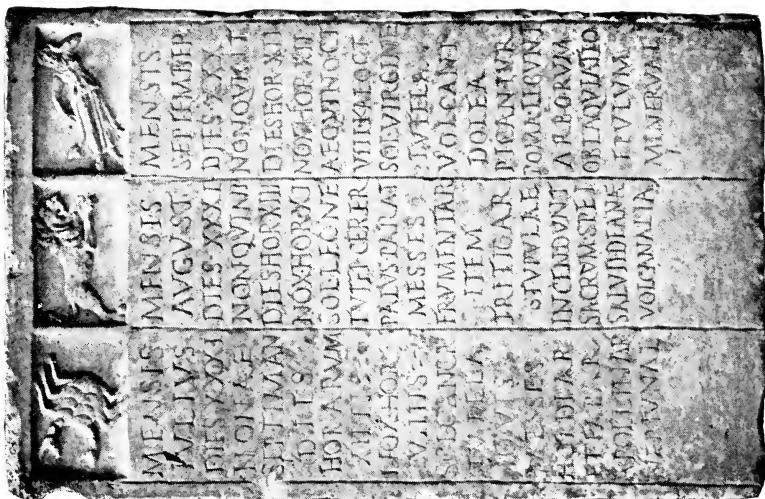 MENSIS
IVLIVS
DIES XXXI
NONAE
SEPTIMAN
DIES
HORARVM
NOX HOR
VIIIIS
SOL CANCR
TVTELA
IOVIS
MESSES
HORDIAR
ET FABAR
APOLLINAR
NEPTVNAL
MENSIS
AVGVST
DIES XXXI
NON QVINT
DIES HOR XIII
NOX HOR XI
SOL LEONE
TVTEL CERER
PALVS PARAT
MESSES
FRVMENTAR
ITEM
TRITICAR
STVPVLAE
INCENDVNT
SACRVM SPEI
SALVTI DIANAE
VOLCANALIA
MENSIS
SEPTEMBER
DIES XXX
NON QVINT
DIES HOR XII
NOX HOR XII
AEQVINOCT
VIII KAL OCT
SOL VIRGINE
TVTELA
VOLCANI
DOLEA
PICANTVR
POMA LEGVNT
ARBORVM
OBLAQVIATIO
EPVLVM
MINERVAE